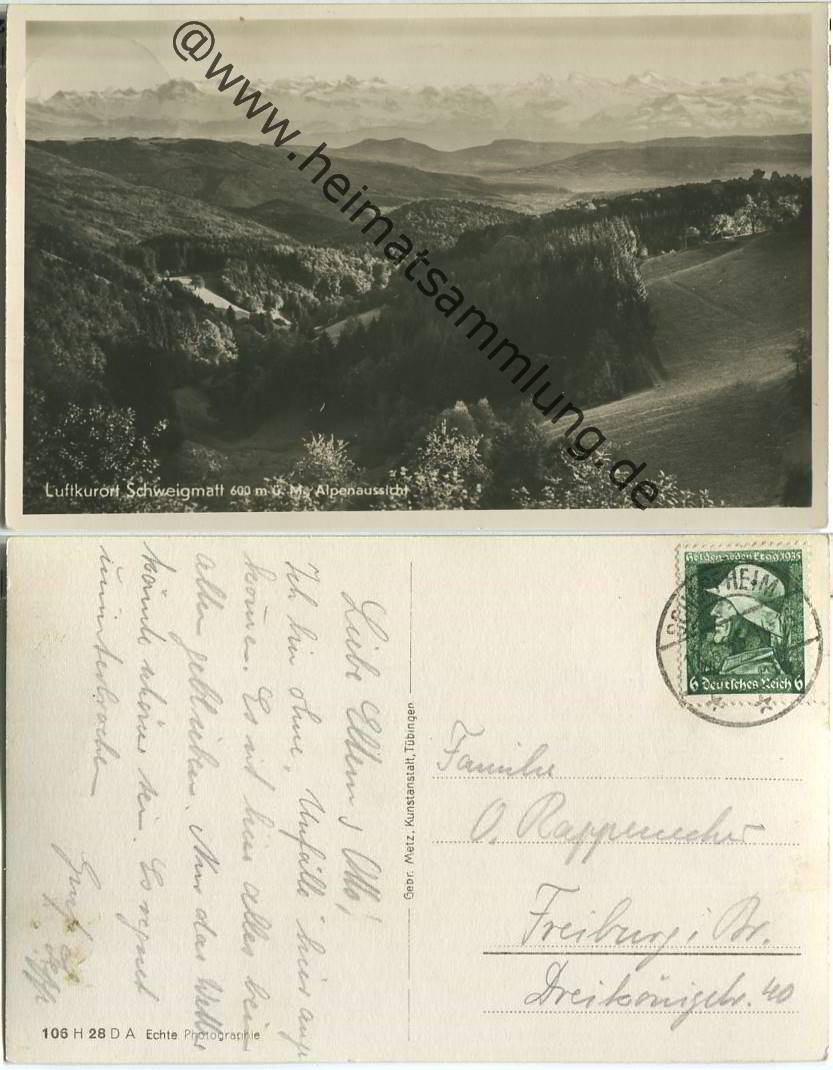 @www.heimatsammlung.de
Luftkurort Schweigmatt 600 m ü. M., Alpenaussicht
Heldengedenktag 1935
6 Deutsches Reich 6
Liebe Eltern u Otto!
Ich bin ohne „Unfälle“ hier ange
kommen. Es ist hier alles beim
alten geblieben. Nur das Wetter
könnte schöner sein. Es regnet
ununterbrochen
Gruß
Gebr. Metz, Kunstanstalt, Tübingen
Familie
O. Rappenecker
Freiburg i Br.
Dreikönigstr. 40
106 H 28 D A Echte Photographie